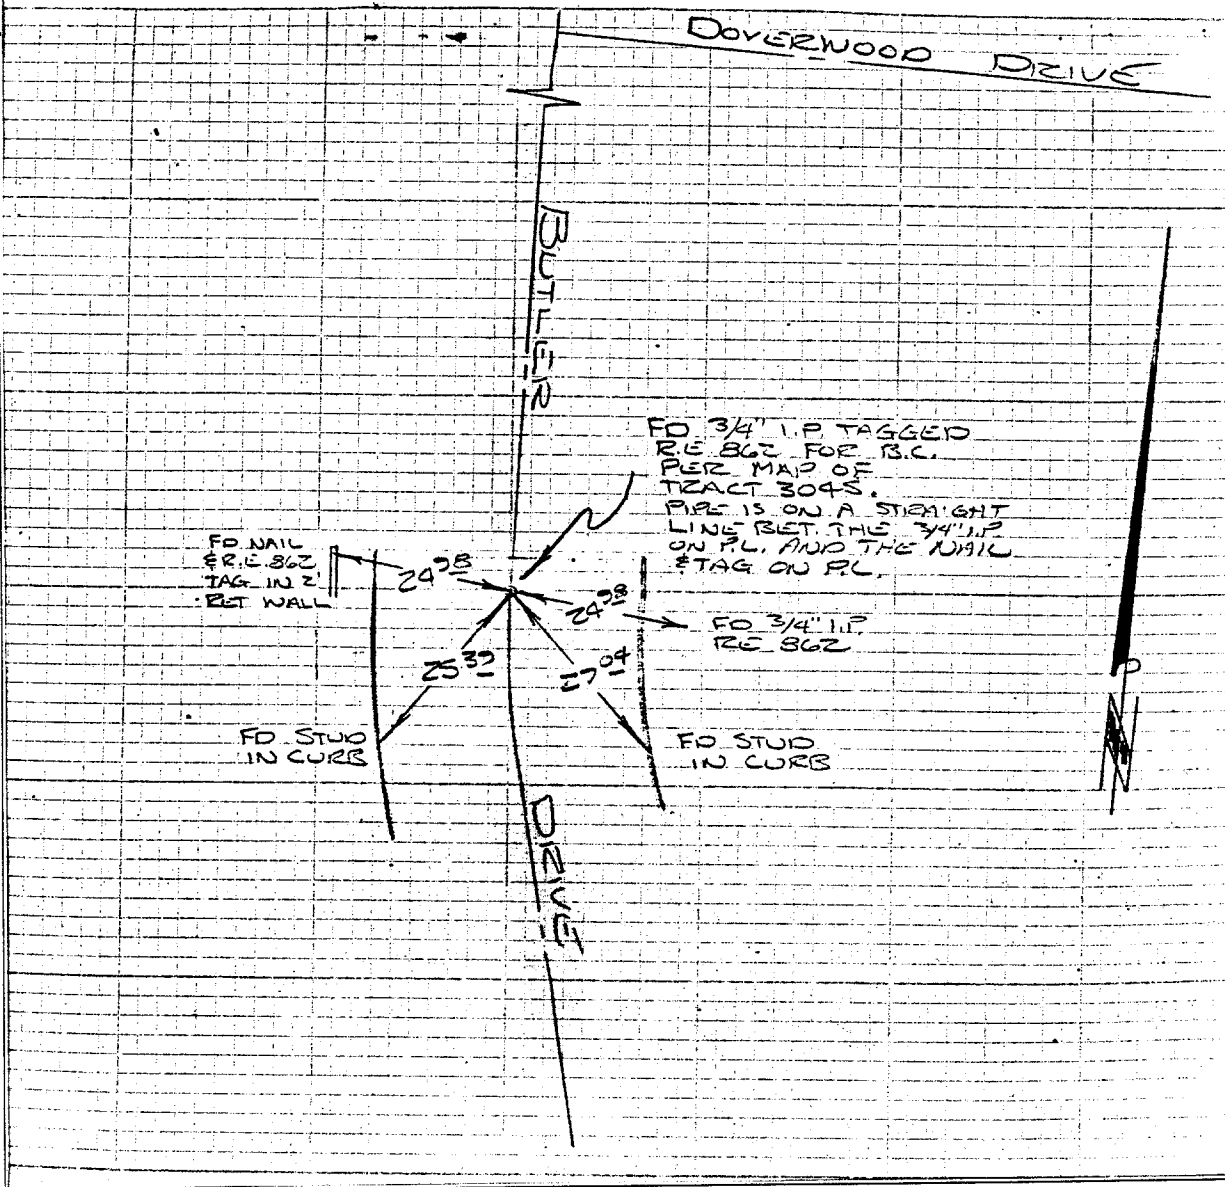 DOVERWOOD DRIVE
BUTLER
FD 3/4" I.P. TAGGED
R.E 862 FOR B.C.
PER MAP OF
TRACT 3045.
PIPE IS ON A STRAIGHT
LINE BET. THE 3/4" I.P.
ON P.L. AND THE NAIL
& TAG ON P.L.
FD NAIL
& R.E. 862
TAG IN 2'
RET WALL
24.98
24.98
FD 3/4" I.P.
RE 862
25.39
FD STUD
IN CURB
FD STUD
IN CURB
DRIVE